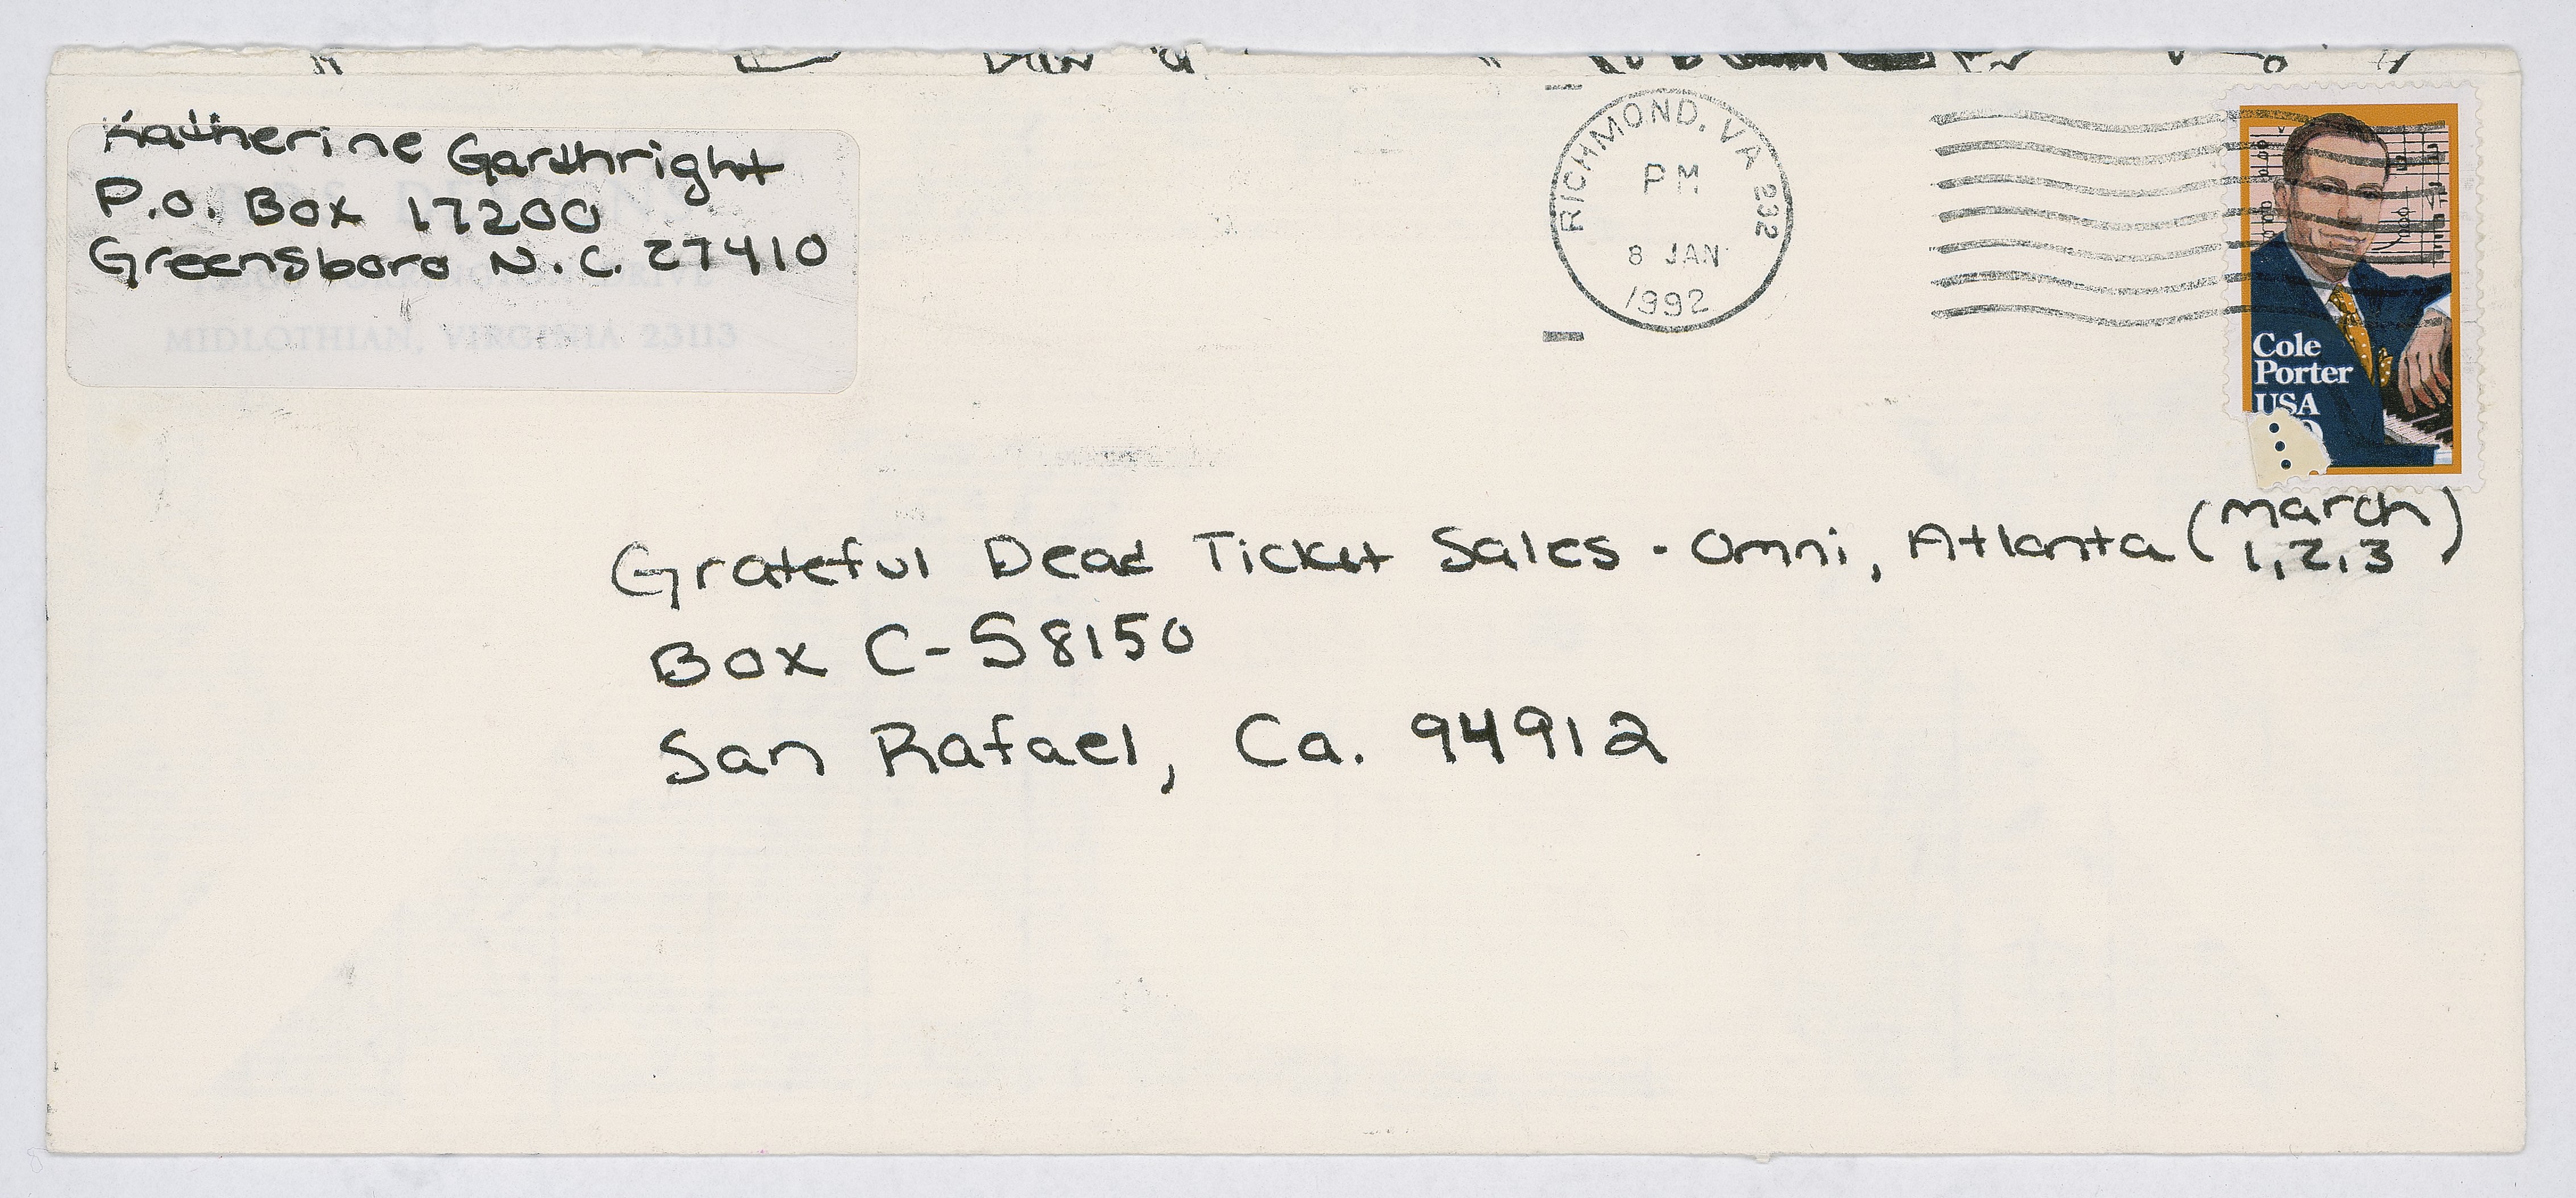 Katherine Garthright
P.O. Box 17200
Greensboro N.C. 27410
MIDLOTHIAN, VIRGINIA 23113
RICHMOND, VA 232
PM
8 JAN
1992
Cole
Porter
USA
Grateful Dead Ticket Sales - Omni, Atlanta (March 1,2,3)
Box C-S8150
San Rafael, Ca. 94912